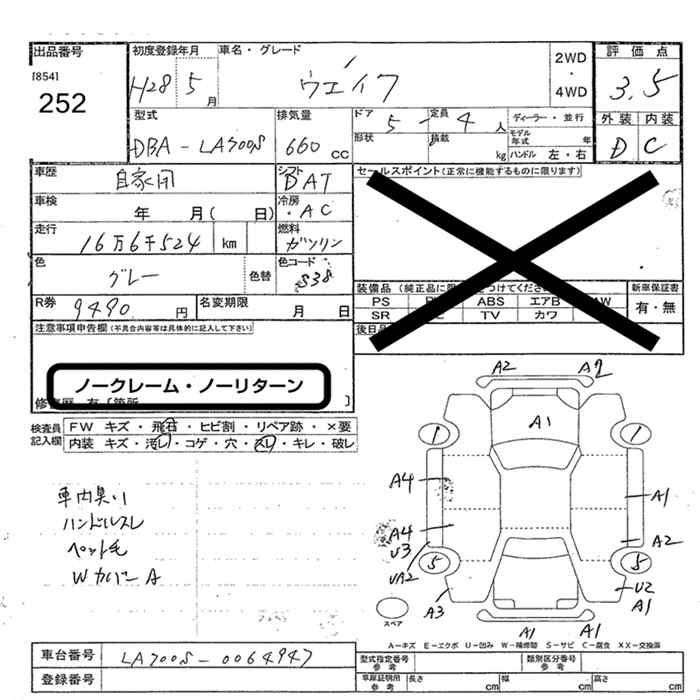 出品番号
[854]
252
初度登録年月
H28 5 月
車名・グレード
ウェイク
2WD
・
4WD
評価点
3.5
外装 内装
D C
型式
DBA-LA700S
排気量
660 cc
ドア
5
定員
4 人
形状
積載
kg
ディーラー・並行
モデル年式 年
ハンドル 左・右
車歴
自家用
シフト
DAT
セールスポイント(正常に機能するものに限ります)
車検
年 月( 日)
冷房
・AC
走行
16万6千524 km
燃料
ガソリン
色
グレー
色替
色コード
S38
装備品 (純正品に
つけてくださ
新車保証書
有・無
PS
ABS エアB
AW
SR
TV カワ
R券
9490 円
名変期限
月 日
後日
注意事項申告欄(不具合内容等は具体的に記入して下さい)
ノークレーム・ノーリターン
検査員記入欄
FW キズ・飛石・ヒビ割・リペア跡・×要
内装 キズ・汚レ・コゲ・穴・スレ・キレ・破レ
車内臭い
ハンドルスレ
ペット毛
WカバーA
A2 A2
A1
1 1
A4
A1
A4
U3
A2
UA2
5 5
A3
U2
A1
スペア
A1 A1
A-キズ E-エクボ U-凹み W-補修跡 S-サビ C-腐食 XX-交換済
車台番号
LA700S-0064947
登録番号
型式指定番号
参考
類別区分番号
参考
車庫証明用
参考
長さ cm 幅 cm 高さ cm